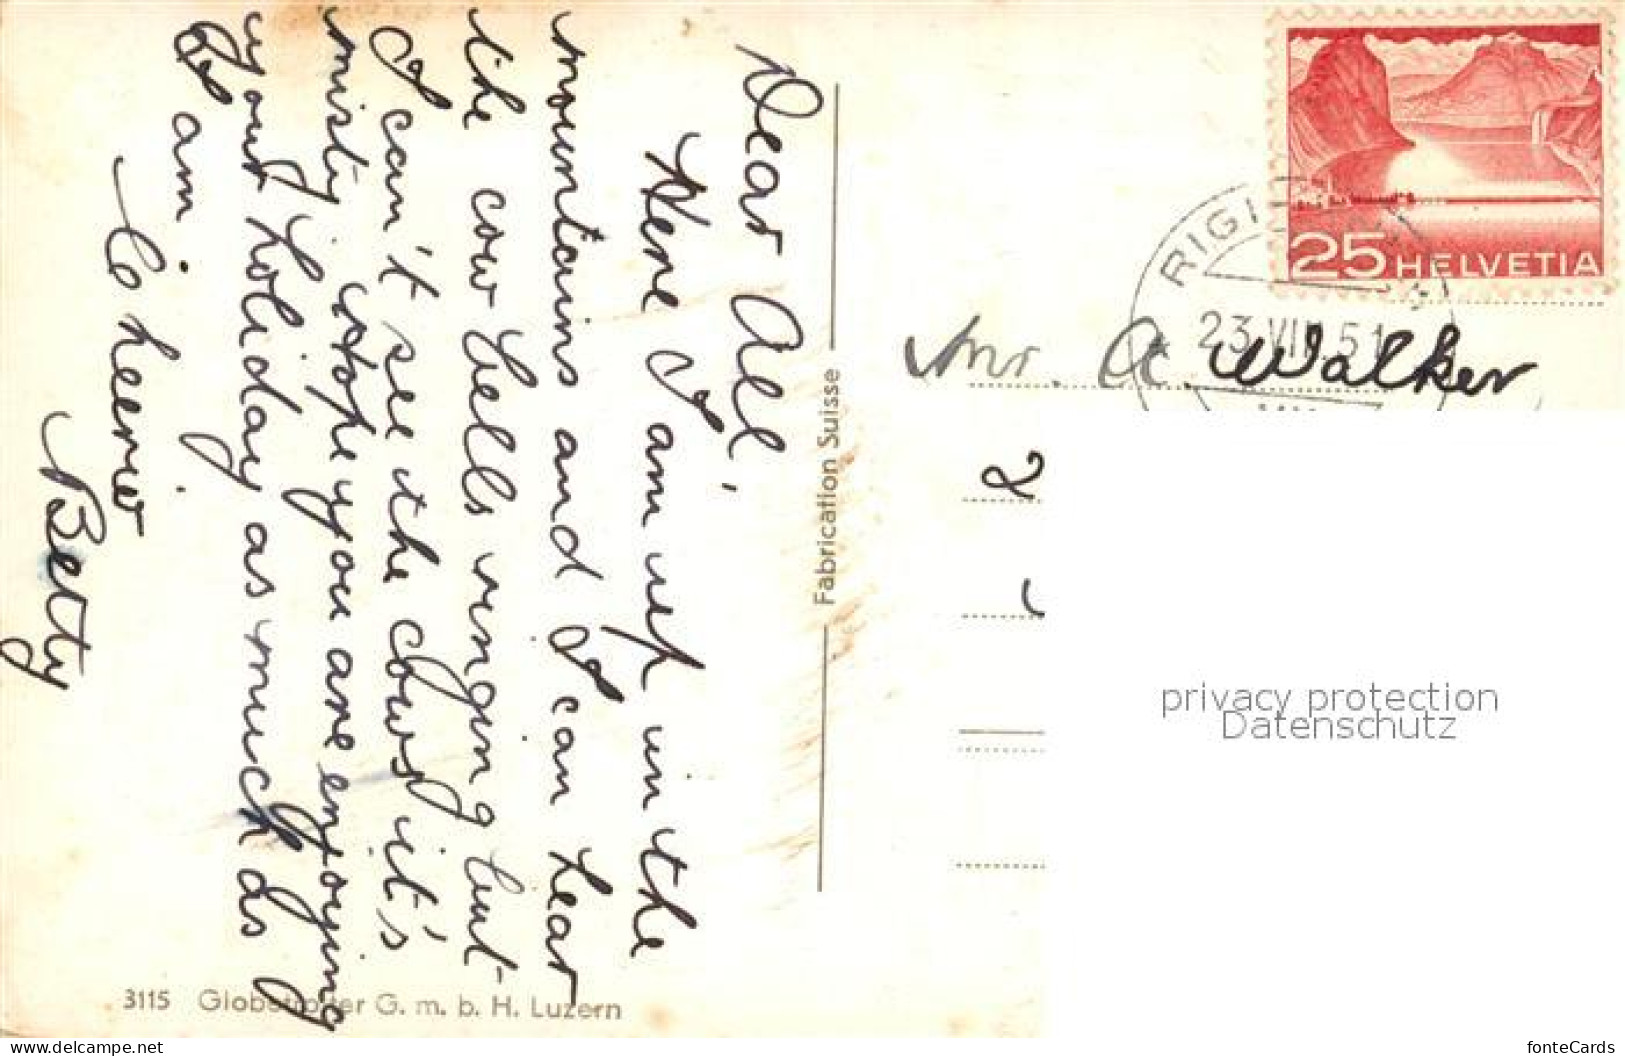 Dear All'
Here I am up in the
mountains and I can hear
the cow bells ringing but
I can't see the cows, it's
misty. Hope you are enjoying
your holiday as much as
I am.
Cheerio
Betty
Fabrication Suisse
3115 Globetrotter G. m. b. H. Luzern
25 HELVETIA
RIGI
23.VIII.51
Mr. A. Walker
privacy protection
Datenschutz
www.ansichtskartenversand.com
fonteCards